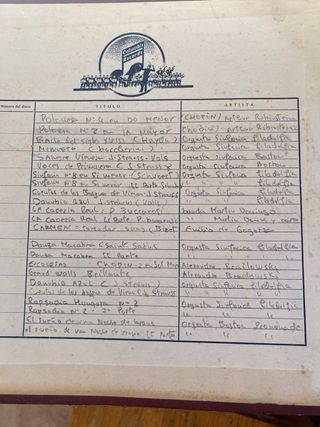 Número del disco TITULO ARTISTA
Polonesa Nº 4 en DO MENOR (CHOPIN) Artur Rubinstein
Polonesa Nº 3 en LA MAYOR Chopin / Artur Rubinstein
Baile del siglo XVIII (Haydn) Orquesta Sinfonica filadelfia
MINUETO (boccherini) Orquesta Sinfonica
SANGRE Vienesa J. Strauss - Vals Orquesta Sinfonica Boston
Voces de Primavera (J. Strauss) Orquesta Sinfonica Boston
Sinfonia Nº 8 en Si menor (Schubert) Orquesta Sinfonica filadelfia
Sinfonia Nº 8 en Si menor II Parte Schubert " " "
Cuentos de los Bosques de Viena J. Strauss Orquesta Sinfonica filadelfia
Danubio Azul J. Strauss (Vals) Orquesta Sinfonica filadelfia
LA CACERIA Real P. Bucarossi banda
LA CACERIA REAL II Parte P. bucarossi
CARMEN = toreador song (Bizet) Emilio de Gogorza
Danza Macabra (Saint Saens Orquesta Sinfonica filadelfia
Danza Macabra II Parte " " "
Escocesas = Chopin = Alexander Brailowsky
Grand Walls Brillante Alexander Brailowsky
Danubio Azul (J. Strauss) Orquesta Sinfonica filadelfia
Cuentos de los Bosques de Viena J. Strauss " " "
Rapsodia Hungara Nº 2 Orquesta Sinfonica filadelfia
Rapsodia nº 2 - 2ª Parte " " "
El sueño de una Noche de Orquesta Boston
el sueño de una Noche II Parte " "